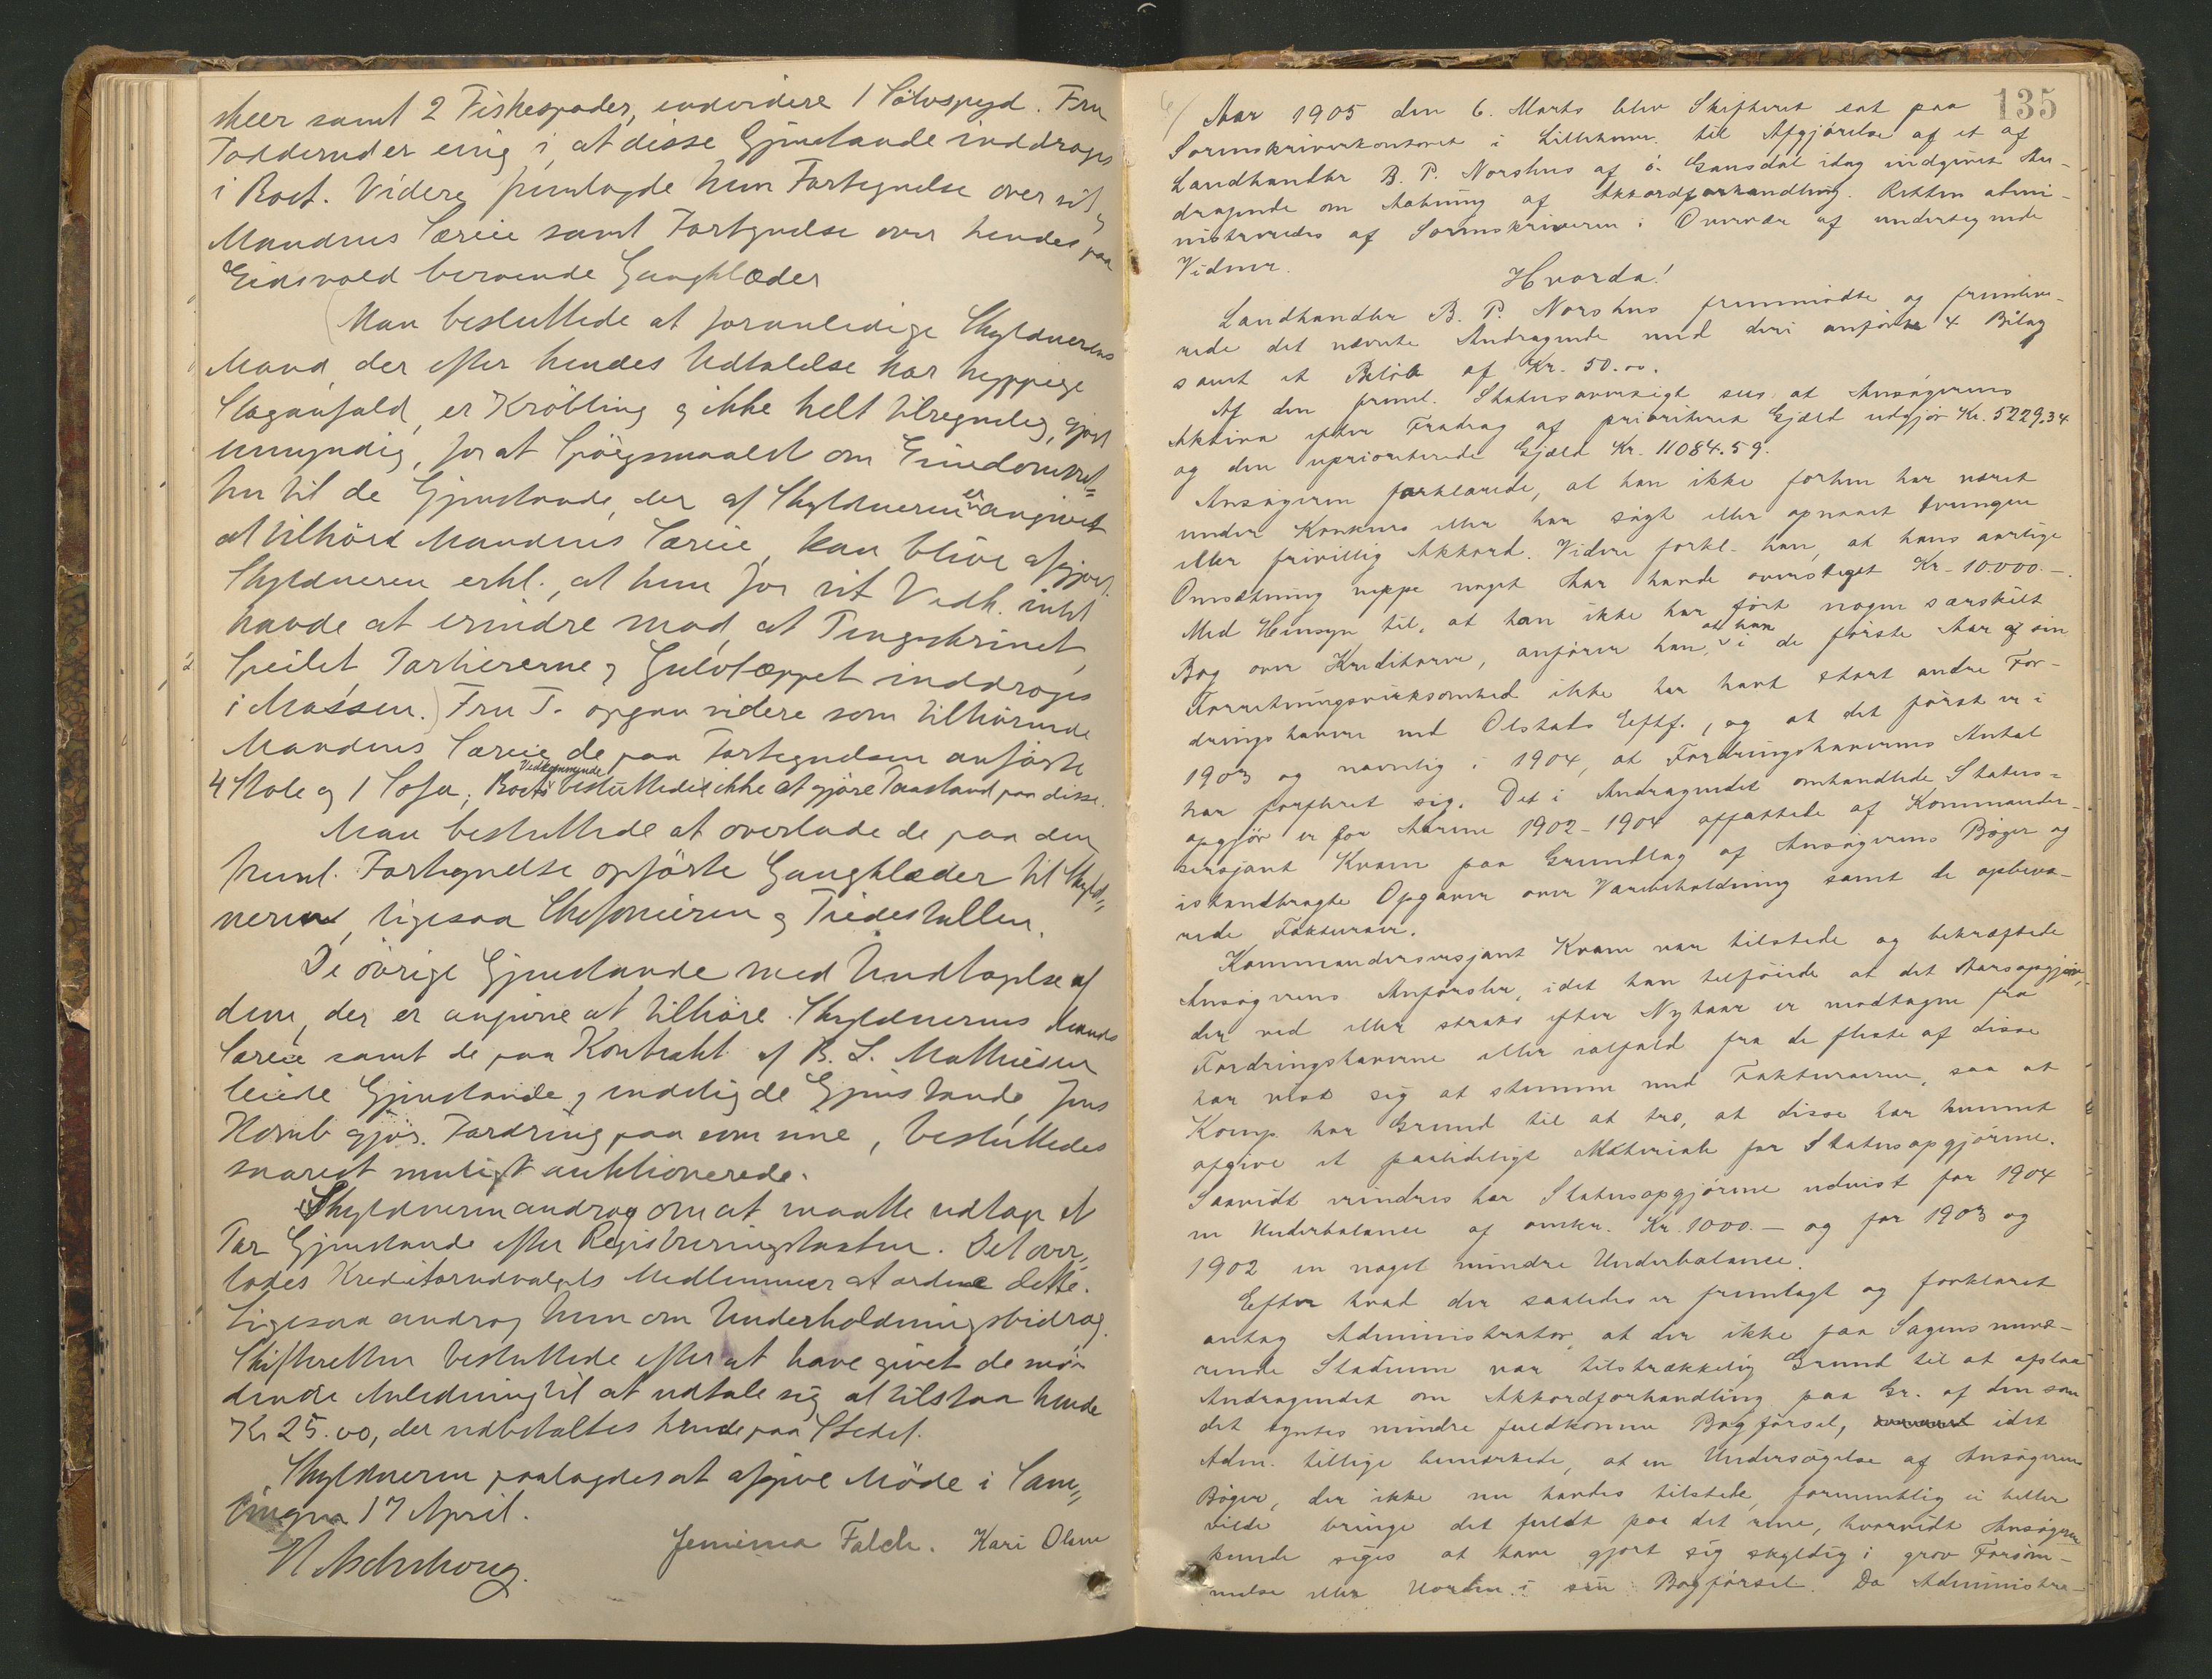 skeer samt 2 Fiskespader, endvidere 1 Sölvspyd. Fru
Todderud er enig i, at disse Gjenstande inddrages
i Boet. Videre fremlagde hun Fortegnelse over sit og
Mandens Særeie samt Fortegnelse over hendes paa
Eidsvold beroende Gangklæder
Man besluttede at foranledige Skyldnerens
Mand, der efter hendes Udtalelse har hyppige
Slaganfald, er Kröbling og ikke helt tilregnelig, gjort
umyndig, for at Spörgsmaalet om Eiendomsret-
ten til de Gjenstande, der af Skyldneren er angivet
at tilhöre Mandens Særeie, kan blive afgjort.
Skyldneren erkl., at hun for sit Vedk. intet
havde at erindre mod, at Pengeskrinet,
Speilet, Portiererne og Gulvtæppet inddroges
i Massen. Fru T. opgav videre som tilhörende
Mandens Særeie de paa Fortegnelsen anförte
4 Stole og 1 Sofa; Boets Vedkommende besluttedes ikke at gjöre Paastand paa disse.
Man besluttede at overlade de paa den
freml. Fortegnelse opförte Gangklæder til Skyld-
neren, ligesaa Chefonieren og Piedestallen.
De övrige Gjenstande med Undtagelse af
dem, der er angivne at tilhöre Skyldnerens Mands
Særeie samt de paa Kontrakt af B. L. Mathiesen
leiede Gjenstande og endelig de Gjenstande, Jens
gjör Fordring paa som sine, besluttedes
snarest muligt auktionerede.
Skyldneren androg om at maatte udtage et
Par Gjenstande efter Registreringstaxten. Det over-
lodes Kreditorudvalgets Medlemmer at ordne dette.
Ligesaa androg hun om Underholdningsbidrag.
Skifteretten besluttede efter at have givet de mö-
dende Anledning til at udtale sig at tilstaa hende
Kr 25.00, der udbetaltes hende paa Stedet.
Skyldneren paalagdes at afgive Möde i Sam-
lingen 17 April.
Jemima Falch. Kari Olsen
135
6/ Aar 1905 den 6. Marts blev Skifteret sat paa
Sorenskriverkontoret i Lillehamr. til Afgjörelse af et af
Landhandler B. P. Norshus af ö. Gausdal idag indgivet An-
dragende om Aabning af Akkordforhandling. Retten admi-
nistreredes af Sorenskriveren i Overvær af undertegnede
Vidner.
Hvorda!
Landhandler B. P. Norshus fremmödte og fremleve-
rede det nævnte Andragende med deri anförte 4 Bilag
samt et Belöb af Kr. 50.00.
Af den freml. Statusoversigt sees at Ansögerens
Aktiva efter Fradrag af prioriteret Gjæld udgjör Kr. 5229.34
og den uprioriterede Gjæld Kr. 11084.59.
Ansögeren forklarede, at han ikke forhen har været
under Konkurs eller har sögt eller opnaaet tvungen
eller frivillig Akkord. Videre forkl. han, at hans aarlige
Omsætning neppe noget Aar havde oversteget Kr. 10.000.-.
Med Hensyn til, at han ikke har fört nogen særskilt
Bog over Kreditorer, anförer han, at han i de förste Aar af sin
Forretningsvirksomhed ikke har havt stort andre For-
dringshavere end Olstads Eftf., og at det först er i
1903 og navnlig i 1904, at Fordringshavernes Antal
har foröket sig. Det i Andragendet omhandlede Status-
opgjör er for Aarene 1902-1904 affattede af Kommander-
sersjant Kvam paa Grundlag af Ansögerens Böger og
istandbragte Opgaver over Varebeholdning samt de opbeva-
rede Fakturaer.
Kommandersersjant Kvam var tilstede og bekræftede
Ansögerens Anförsler, idet han tilföiede at det Aarsopgjör,
der ved eller straks efter Nytaar er modtagne fra
Fordringshaverne eller ialfald fra de fleste af disse
har vist sig at stemme med Fakturaerne, saa at
Komp. har Grund til at tro, at disse har kunnet
afgive et paalideligt Materiale for Statusopgjörene.
Saavidt erindres har Statusopgjörene udvist for 1904
en Underbalance af omkr. Kr. 1000.- og for 1903 og
1902 en noget mindre Underbalance.
Efter hvad der saaledes er fremlagt og forklaret
antog Administrator, at der ikke paa Sagens nuvæ-
rende Stadium var tilstrækkelig Grund til at afslaa
Andragendet om Akkordforhandling paa Gr. af den som
det syntes mindre fuldkomne Bogförsel, idet
Adm. tillige bemærkede, at en Undersögelse af Ansögerens
Böger, der ikke nu havdes tilstede, formentlig ei heller
vilde bringe det fuldt paa det rene, hvorvidt Ansögeren
kunde siges at have gjort sig skyldig i grov Forsöm-
melse eller Uorden i sin Bogförsel. Da Administra-